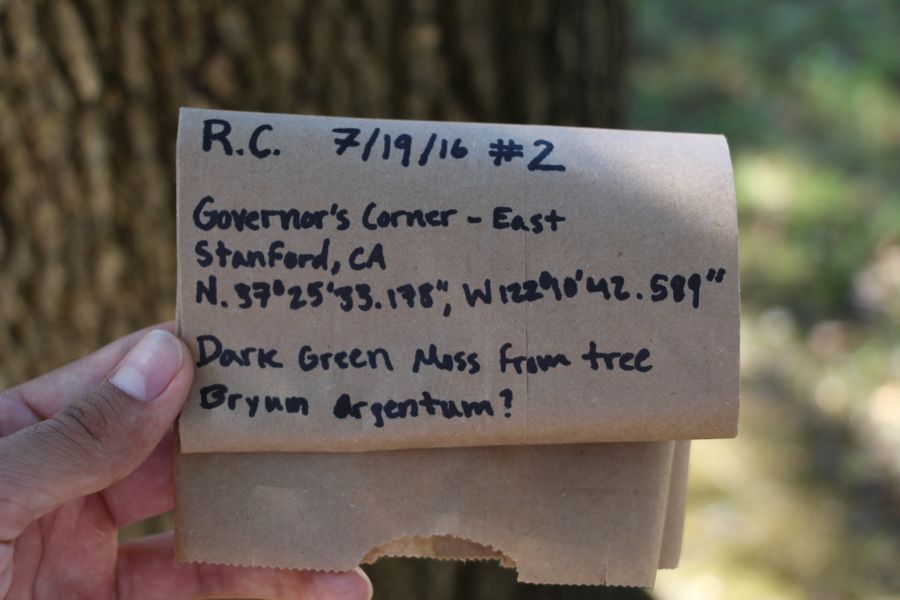 R.C. 7/19/16 #2
Governor's Corner - East
Stanford, CA
N.37°25'33.178", W122°10'42.589"
Dark Green Moss from tree
Bryum Argentum?